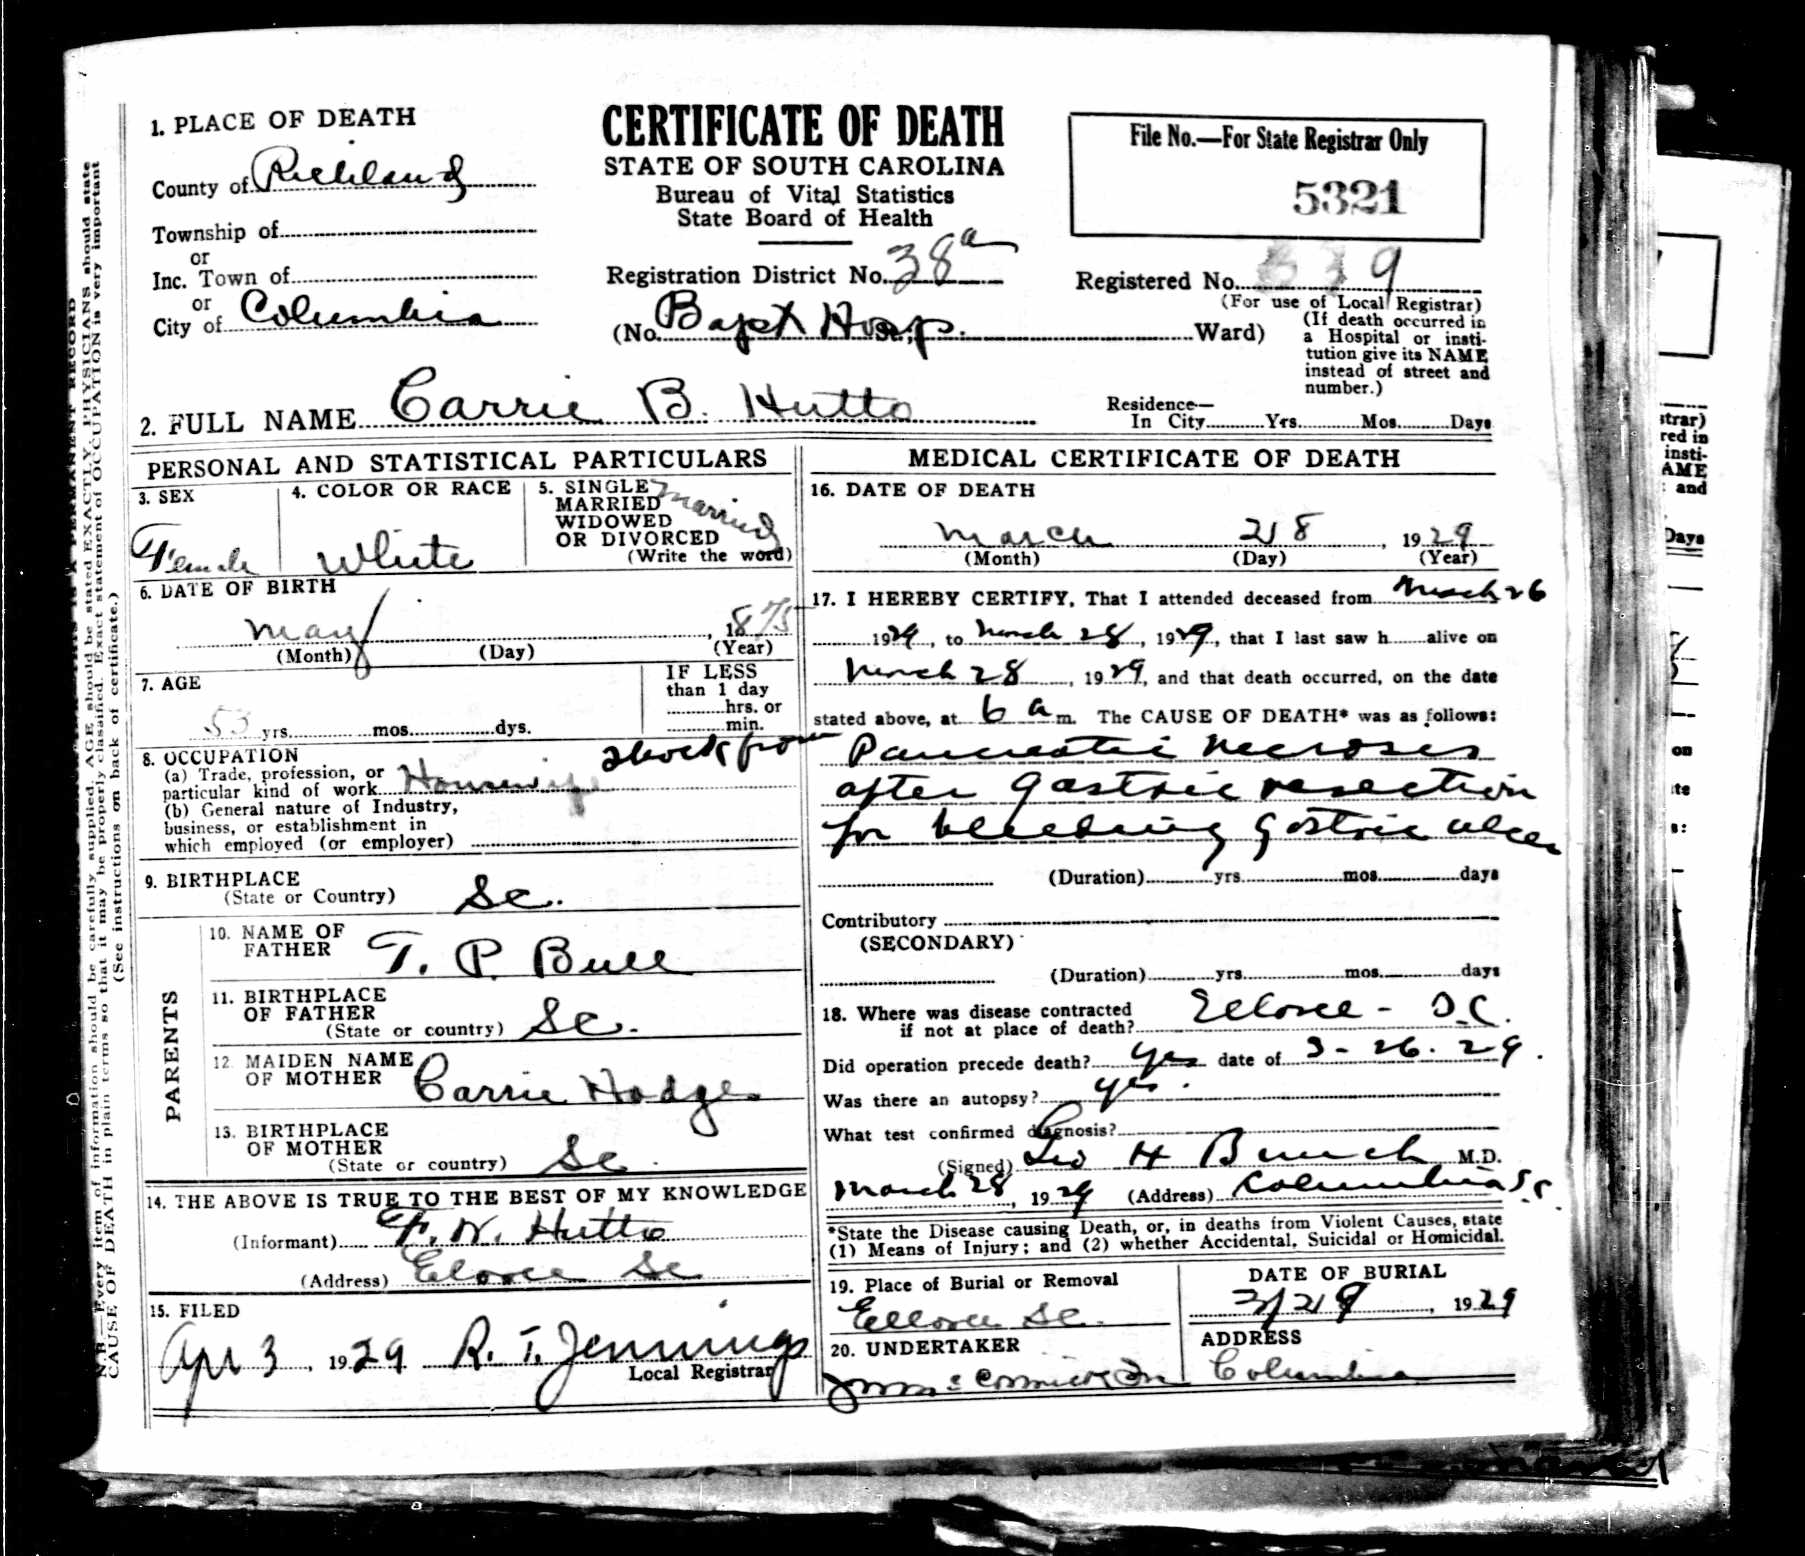 1. PLACE OF DEATH
County of Richland
Township of
or
Inc. Town of
or
City of Columbia
CERTIFICATE OF DEATH
STATE OF SOUTH CAROLINA
Bureau of Vital Statistics
State Board of Health
Registration District No. 38a
(No. Bapt Hosp. St., Ward)
File No.—For State Registrar Only
5321
Registered No. 9
(For use of Local Registrar)
(If death occurred in
a Hospital or insti-
tution give its NAME
instead of street and
number.)
2. FULL NAME Carrie B. Hutto
Residence—
In City Yrs. Mos. Days
PERSONAL AND STATISTICAL PARTICULARS
3. SEX
Female
4. COLOR OR RACE
White
5. SINGLE
MARRIED
WIDOWED
OR DIVORCED
(Write the word)
Married
6. DATE OF BIRTH
May, 1875
(Month) (Day) (Year)
7. AGE
53 yrs. mos. dys.
IF LESS
than 1 day
hrs. or
min.
8. OCCUPATION
(a) Trade, profession, or
particular kind of work Housewife
(b) General nature of Industry,
business, or establishment in
which employed (or employer)
9. BIRTHPLACE
(State or Country) Sc.
PARENTS
10. NAME OF
FATHER T. P. Bull
11. BIRTHPLACE
OF FATHER
(State or country) Sc.
12 MAIDEN NAME
OF MOTHER Carrie Hodge
13. BIRTHPLACE
OF MOTHER
(State or country) Sc.
14. THE ABOVE IS TRUE TO THE BEST OF MY KNOWLEDGE
(Informant) W. Hutto
(Address) Eloree Sc
15. FILED
Apr 3, 1929 R. T. Jennings
Local Registrar
MEDICAL CERTIFICATE OF DEATH
16. DATE OF DEATH
March 28, 1929
(Month) (Day) (Year)
17. I HEREBY CERTIFY, That I attended deceased from March 26
1929, to March 28, 1929, that I last saw h alive on
March 28, 1929, and that death occurred, on the date
stated above, at 6 a m. The CAUSE OF DEATH* was as follows:
shock from Pancreatic necroses
after gastric resection
for bleeding gastric ulcer
(Duration) yrs. mos. days
Contributory
(SECONDARY)
(Duration) yrs. mos. days
18. Where was disease contracted
if not at place of death? Elloree - S.C.
Did operation precede death? yes date of 3-26-29.
Was there an autopsy? yes.
What test confirmed diagnosis?
(Signed) Geo H Bunch M.D.
March 28, 1929 (Address) Columbia S.C
*State the Disease causing Death, or, in deaths from Violent Causes, state
(1) Means of Injury; and (2) whether Accidental, Suicidal or Homicidal.
19. Place of Burial or Removal
Elloree Sc.
DATE OF BURIAL
3/29, 1929
20. UNDERTAKER
ADDRESS
Columbia
N.B.—Every item of information should be carefully supplied. AGE should be stated EXACTLY. PHYSICIANS should state
CAUSE OF DEATH in plain terms so that it may be properly classified. Exact statement of OCCUPATION is very important
(See instructions on back of certificate.)
strar)
red in
insti-
AME
and
Days
on